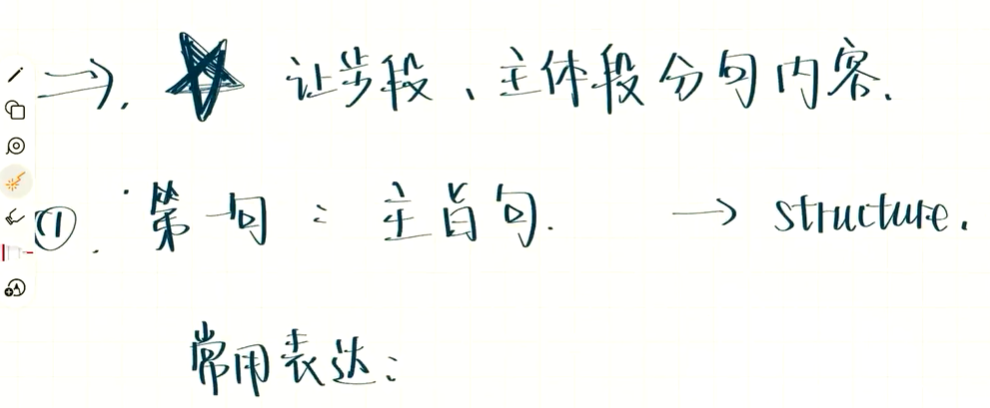 →. ☆ 让步段、主体段分句内容.
①. 第一句：主旨句. → structure.
常用表达：